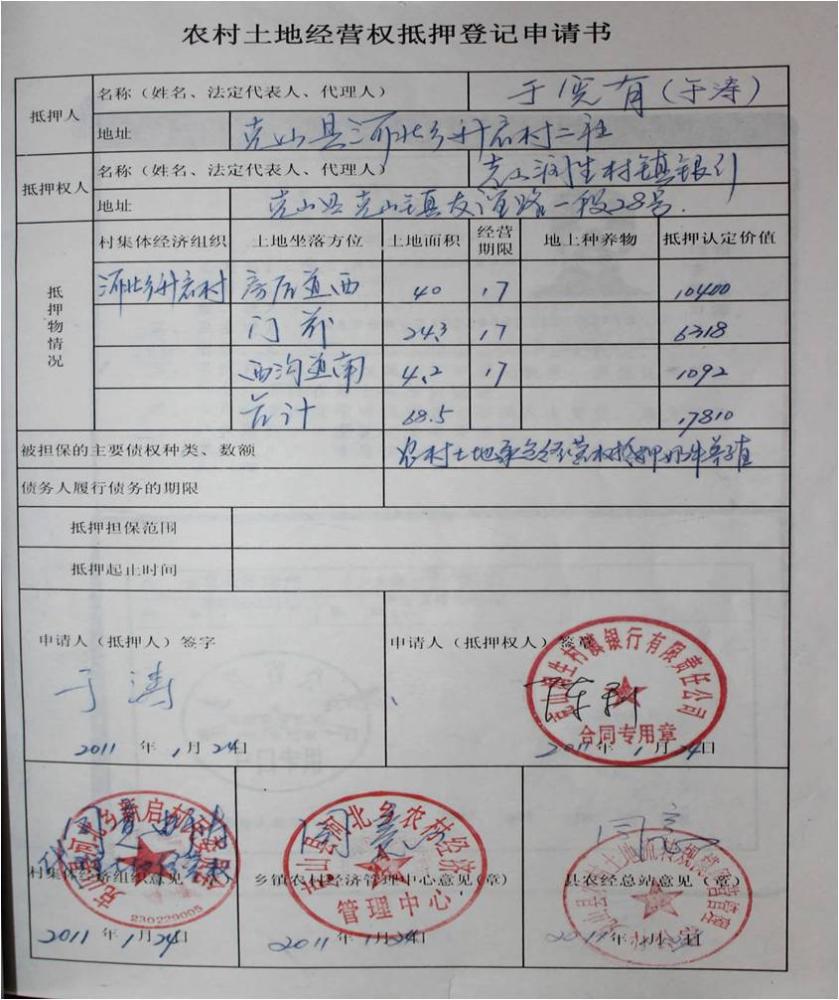 农村土地经营权抵押登记申请书
抵押人
名称（姓名、法定代表人、代理人）
于宪有（于涛）
地址
克山县河北乡新启村二社
抵押权人
名称（姓名、法定代表人、代理人）
克山润生村镇银行
地址
克山县克山镇友谊路一段28号
抵押物情况
村集体经济组织 土地坐落方位 土地面积 经营期限 地上种养物 抵押认定价值
河北乡升启村 房后道西 40 17 10400
门前 24.3 17 6318
西沟道南 4.2 17 1092
合计 68.5 17810
被担保的主要债权种类、数额
农村土地承包经营权抵押奶牛养殖
债务人履行债务的期限
抵押担保范围
抵押起止时间
申请人（抵押人）签字
于涛
2011年1月24日
申请人（抵押权人）签章
克山润生村镇银行有限责任公司
合同专用章
2011年1月24日
村集体经济组织意见
230229005
2011年1月24日
乡镇农村经济管理中心意见（章）
克山县河北乡农村经济
管理中心
2011年1月24日
县农经总站意见（章）
2011年1月24日